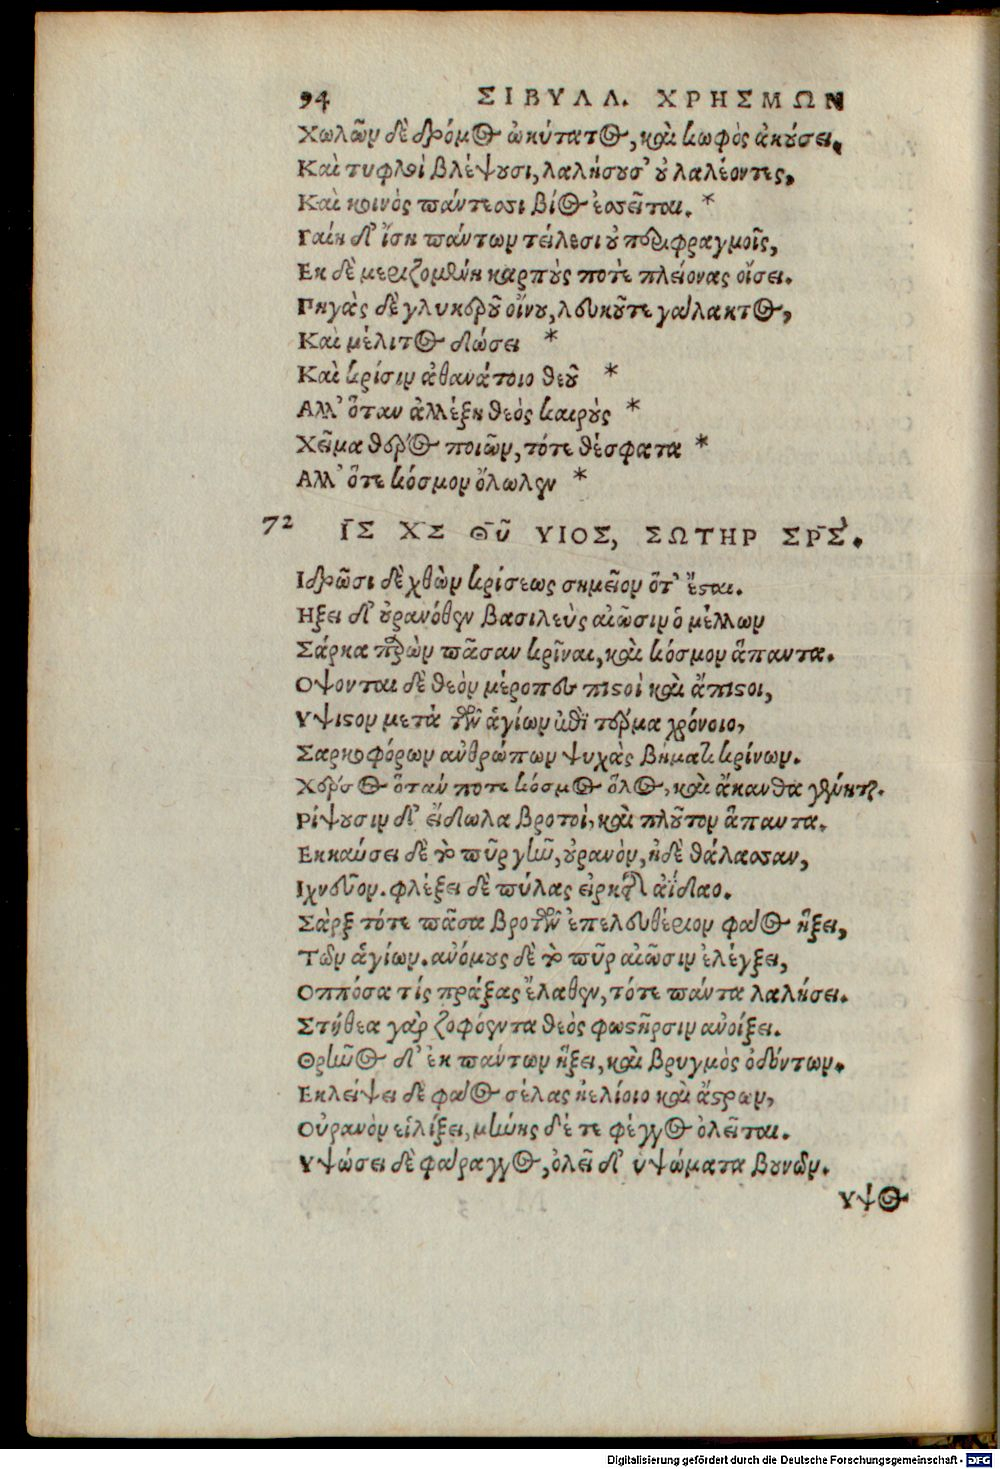 94 ΣΙΒΥΛΛ. ΧΡΗΣΜΩΝ
Χωλῶν δὲ δρόμος ὠκύτατος, καὶ κωφὸς ἀκούσει,
Καὶ τυφλοὶ βλέψουσι, λαλήσουσ' οὐ λαλέοντες,
Καὶ κοινὸς πάντεσσι βίος ἐσσεῖται. *
Γαίη δ' ἴση πάντων τείλεσι οὐ περιφραγμοῖς,
Εκ δὲ μεριζομένη καρποὺς ποτὲ πλείονας οἴσει.
Πηγὰς δὲ γλυκεροῦ οἴνου, λευκοῦτε γάλακτος,
Καὶ μέλιτος δώσει *
Καὶ κρίσιν ἀθανάτοιο θεοῦ *
Αλλ' ὅταν ἀλλέξη θεὸς καιροὺς *
Χεῖμα θέρος ποιῶν, τότε θέσφατα *
Αλλ' ὅτε κόσμον ὄλωλεν *
72 ΙΣ ΧΣ Θῦ ΥΙΟΣ, ΣΩΤΗΡ ΣΡΣ.
Ιδρῶσι δὲ χθὼν κρίσεως σημεῖον ὅτ' ἔσται.
Ηξει δ' οὐρανόθεν βασιλεὺς αἰῶσιν ὁ μέλλων
Σάρκα παρὼν πᾶσαν κρῖναι, καὶ κόσμον ἅπαντα.
Οψονται δὲ θεὸν μέροπες πιστοὶ καὶ ἄπιστοι,
Υψιστον μετὰ τῶν ἁγίων ἐπὶ τέρμα χρόνοιο,
Σαρκοφόρων ανθρώπων ψυχὰς βήματι κρίνων.
Χέρσος ὅταν ποτε κόσμος ὅλος, καὶ ἄκανθα γένηται.
Ρίψουσιν δ' εἴδωλα βροτοὶ, καὶ πλοῦτον ἅπαντα.
Εκκαύσει δὲ τὸ πῦρ γῆν, οὐρανὸν, ἠδὲ θάλασσαν,
Ιχνεῦον. φλέξει δὲ πύλας εἱρκτῆς ἀΐδαο.
Σὰρξ τότε πᾶσα βροτῶν ἐπελευθέριον φάος ἥξει,
Τῶν ἁγίων. ανόμους δὲ τὸ πῦρ αἰῶσιν ἐλέγξει,
Οππόσα τίς πράξας ἔλαθεν, τότε πάντα λαλήσει.
Στήθεα γὰρ ζοφόεντα θεὸς φωστῆρσιν ανοίξει.
Θρῆνος δ' ἐκ πάντων ἥξει, καὶ βρυγμὸς ὀδόντων.
Εκλείψει δὲ φάος σέλας ἠελίοιο καὶ ἄστρων,
Οὐρανὸν εἱλίξει, μήνης δέ τε φέγγος ὀλεῖται.
Υψώσει δὲ φάραγγος, ὀλεῖ δ' ὑψώματα βουνῶν.
Υψος
Digitalisierung gefördert durch die Deutsche Forschungsgemeinschaft - DFG